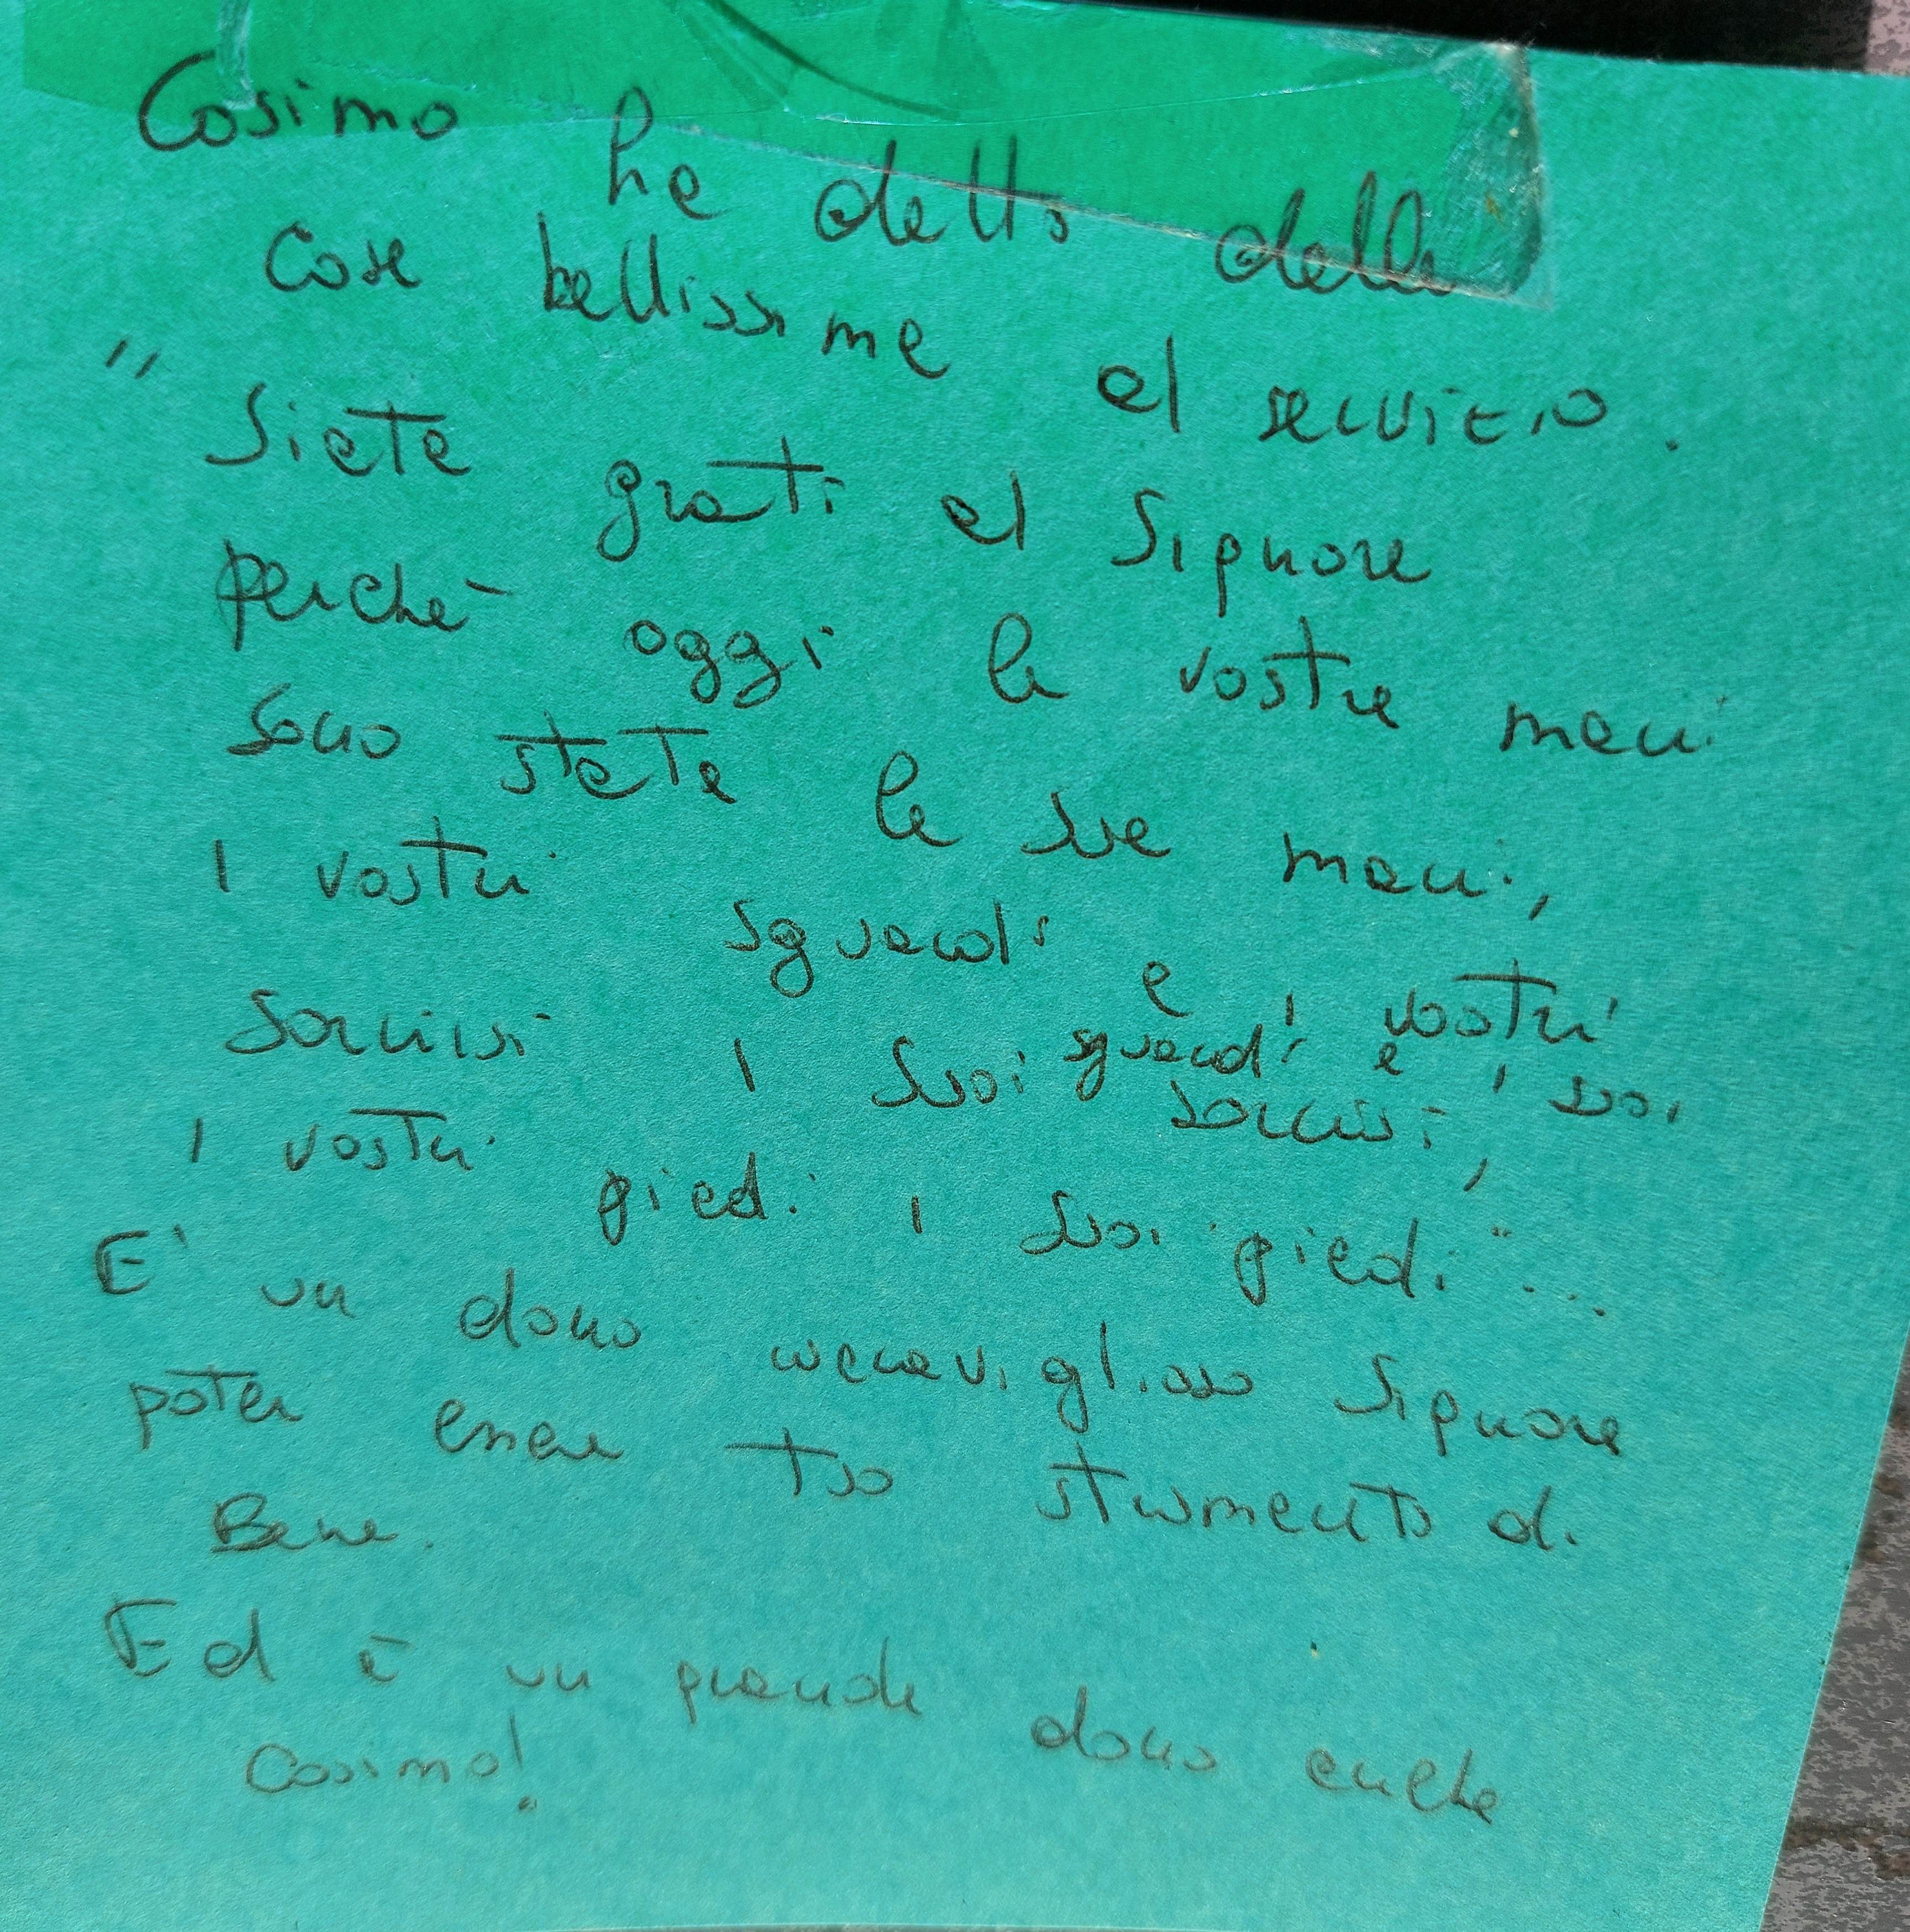 Cosimo ha detto delle
cose bellissime al servizio.
"Siete grati al Signore
perchè oggi le vostre mani
sono state le sue mani,
i vostri sguardi e i vostri
sorrisi i suoi sguardi e i suoi
sorrisi,
i vostri piedi i suoi piedi"...
E' un dono meraviglioso Signore
poter essere tuo strumento di
Bene.
Ed è un grande dono anche
Cosimo!